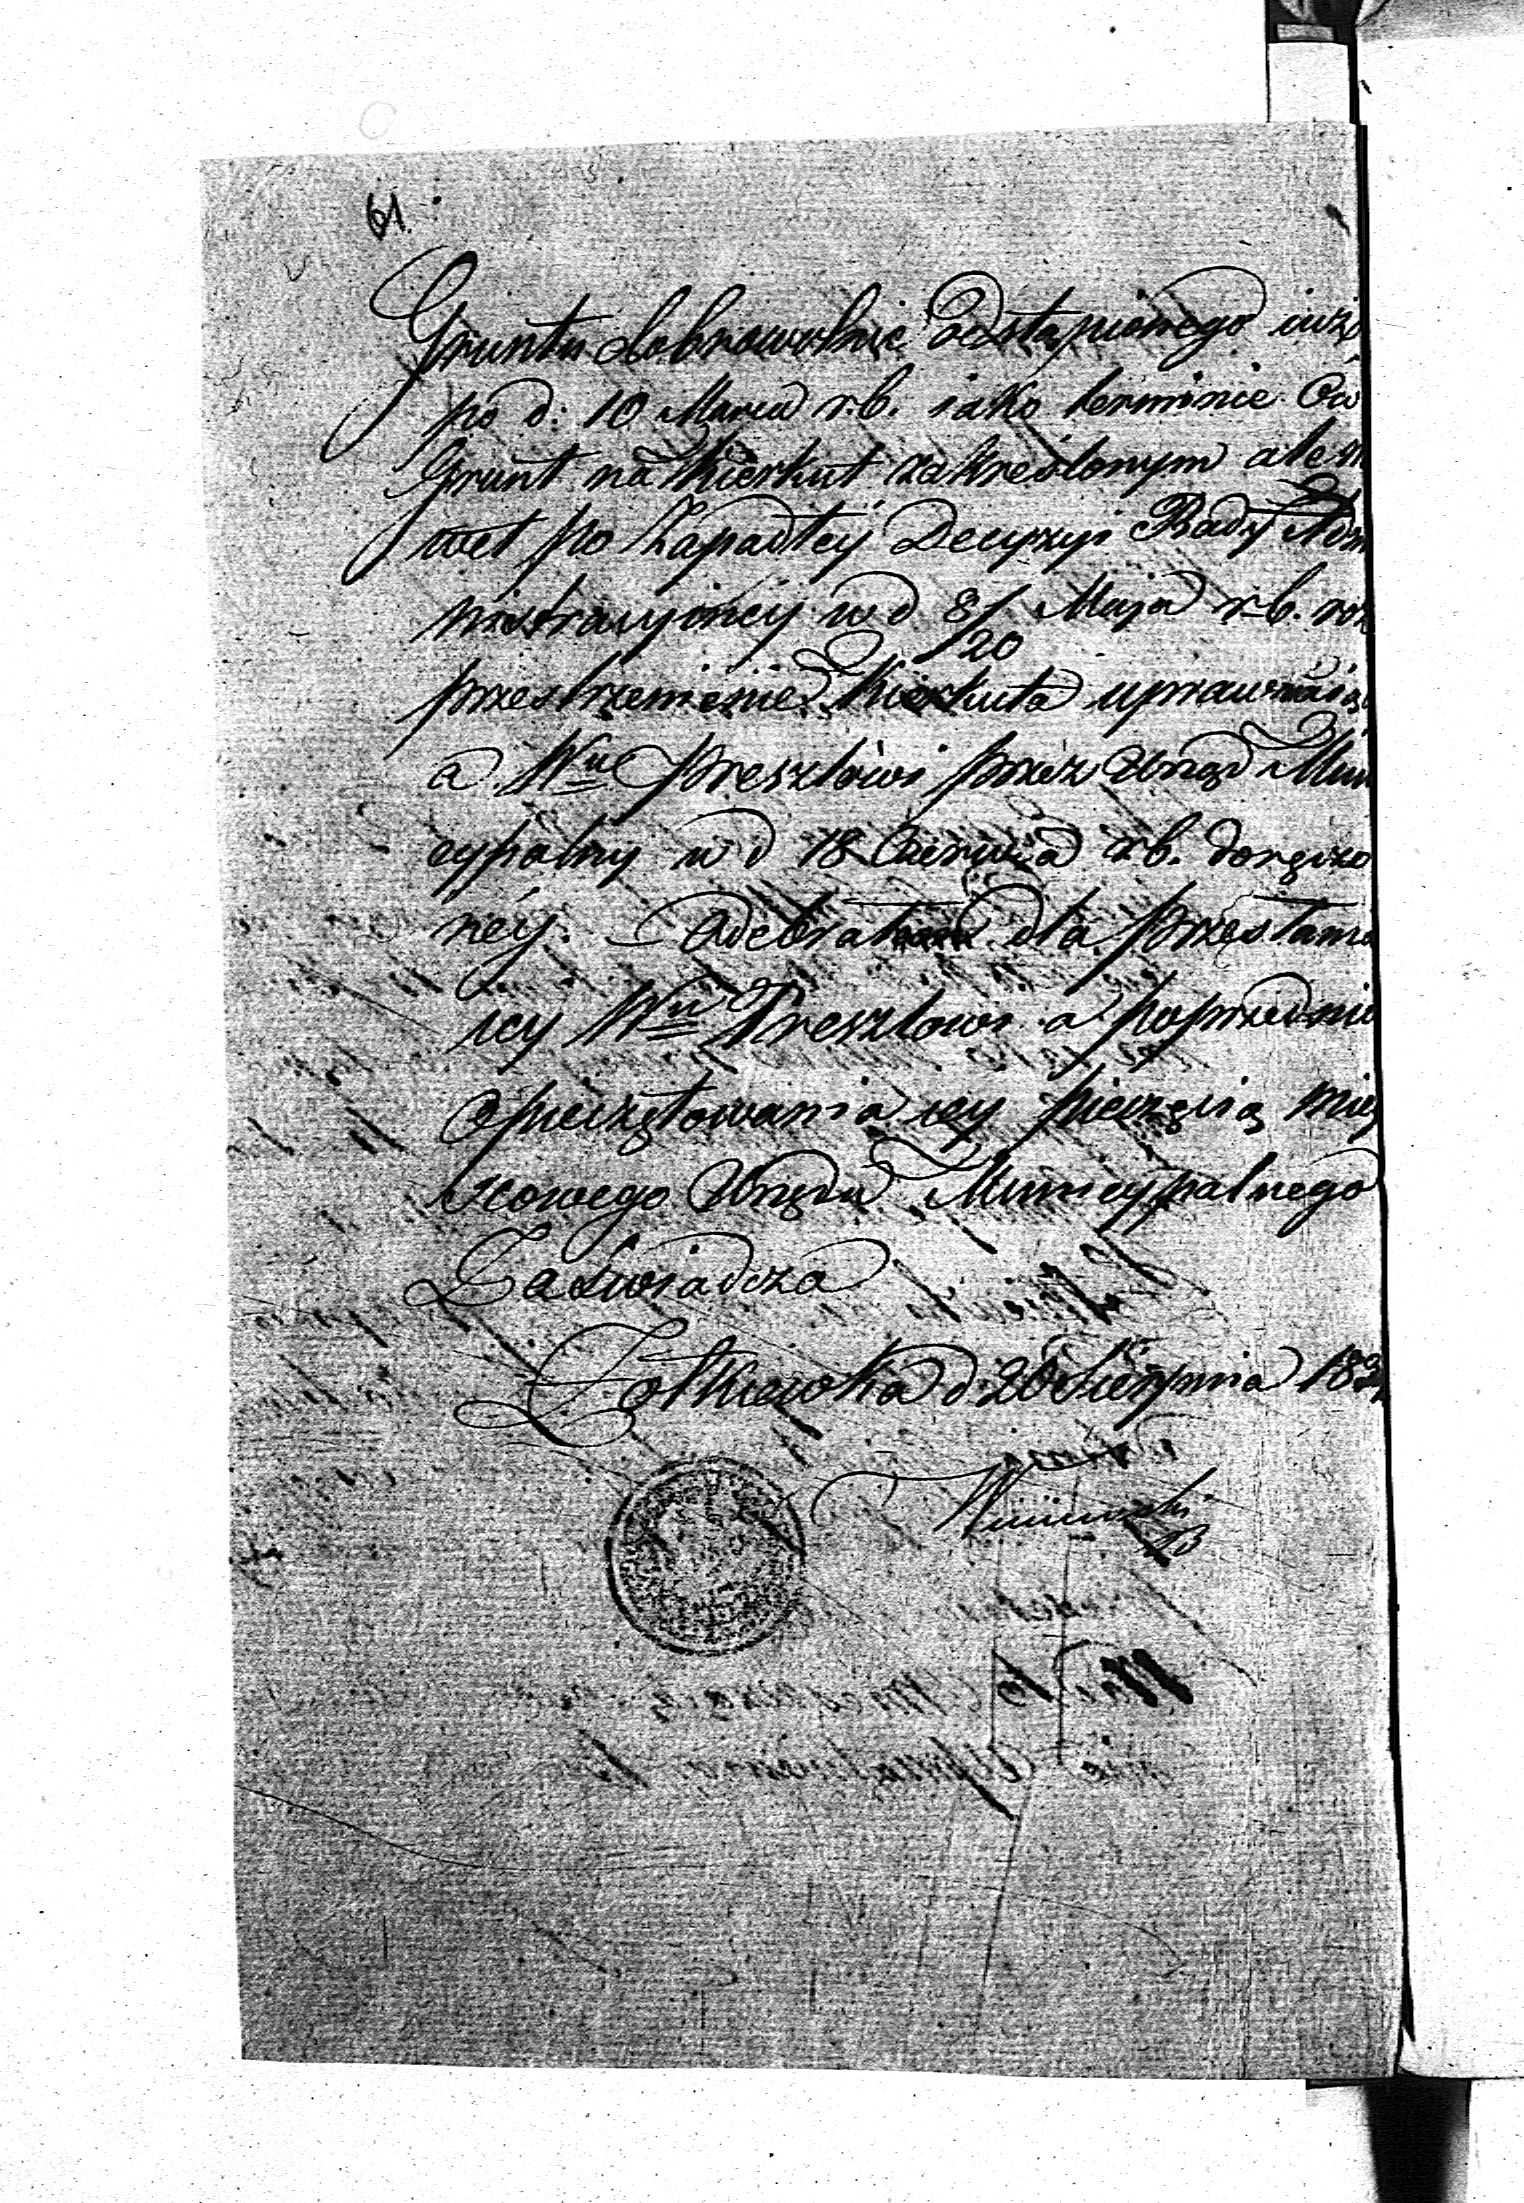 61.
Gruntu dobrowolnie odstąpionego iuż
po d: 10 Marca r.b. iako terminie Ow
Grunt na Kierkut zakreślonym ale n
wet po Zapadłey Decyzyi Rady Adm
nistracyjney w d 8/20 Maja r.b. roz
przestrzenienie Kierkuta upraw
a Wu Preszlowi przez Urząd Mun
cypalny w d 18 Czerwca rb. doręczo
néy. Odebrał dla przesłania
iey Wu Preszlowi a poprzednio
opieczętowania iey pieczęcią miey
scowego Urzędu Municypalnego
Zaświadcza
Żołkiewka d 20 Sierpnia 183